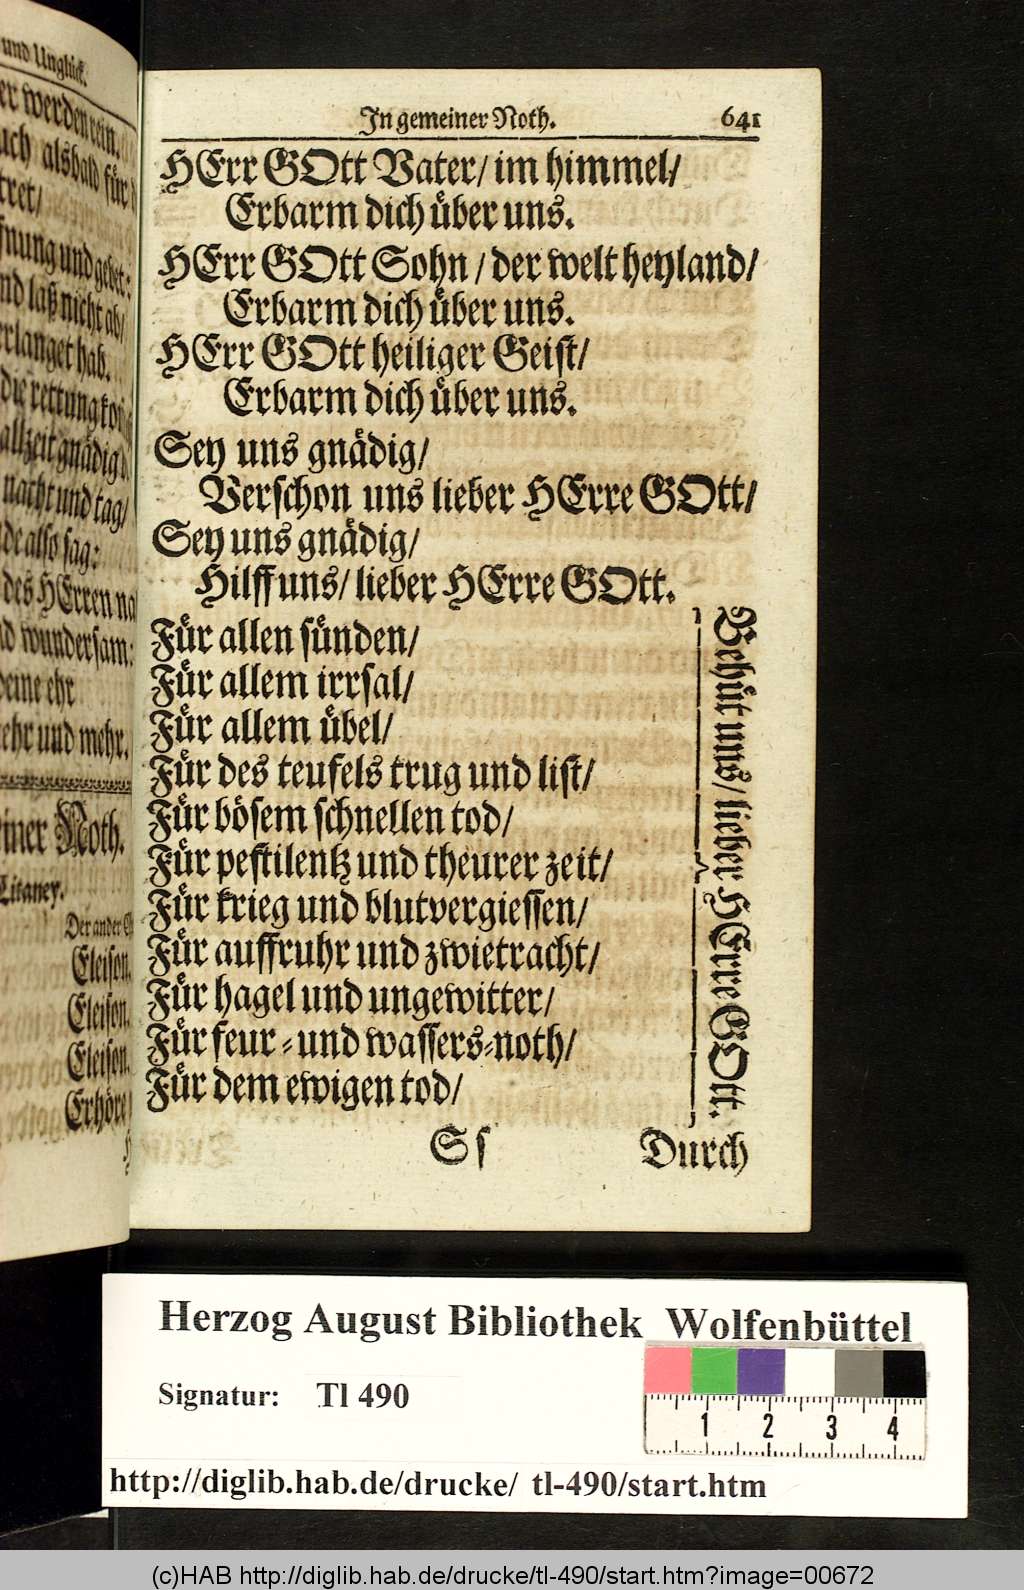 und Unglück.
er werden rein.
uch alsbald für
tret/
fnung und gebet:
nd laß nicht ab/
rlanget hab.
die rettung
allzeit gnädig
nacht und tag/
de also sag:
des HErren
nd wundersam:
deine ehr
ehr und mehr.
einer Noth.
Litaney.
Der ander
Eleison.
Eleison.
Eleison.
Erhöre
In gemeiner Noth. 641
HErr GOtt Vater/ im himmel/
Erbarm dich über uns.
HErr GOtt Sohn / der welt heyland/
Erbarm dich über uns.
HErr GOtt heiliger Geist/
Erbarm dich über uns.
Sey uns gnädig/
Verschon uns lieber HErre GOtt/
Sey uns gnädig/
Hilff uns/ lieber HErre GOtt.
Für allen sünden/
Für allem irrsal/
Für allem übel/
Für des teufels trug und list/
Für bösem schnellen tod/
Für pestilentz und theurer zeit/
Für krieg und blutvergiessen/
Für auffruhr und zwietracht/
Für hagel und ungewitter/
Für feur- und wassers-noth/
Für dem ewigen tod/
Behüt uns/ lieber HErre GOtt.
Sſ Durch
Herzog August Bibliothek Wolfenbüttel
Signatur: Tl 490
1 2 3 4
http://diglib.hab.de/drucke/ tl-490/start.htm
(c)HAB http://diglib.hab.de/drucke/tl-490/start.htm?image=00672